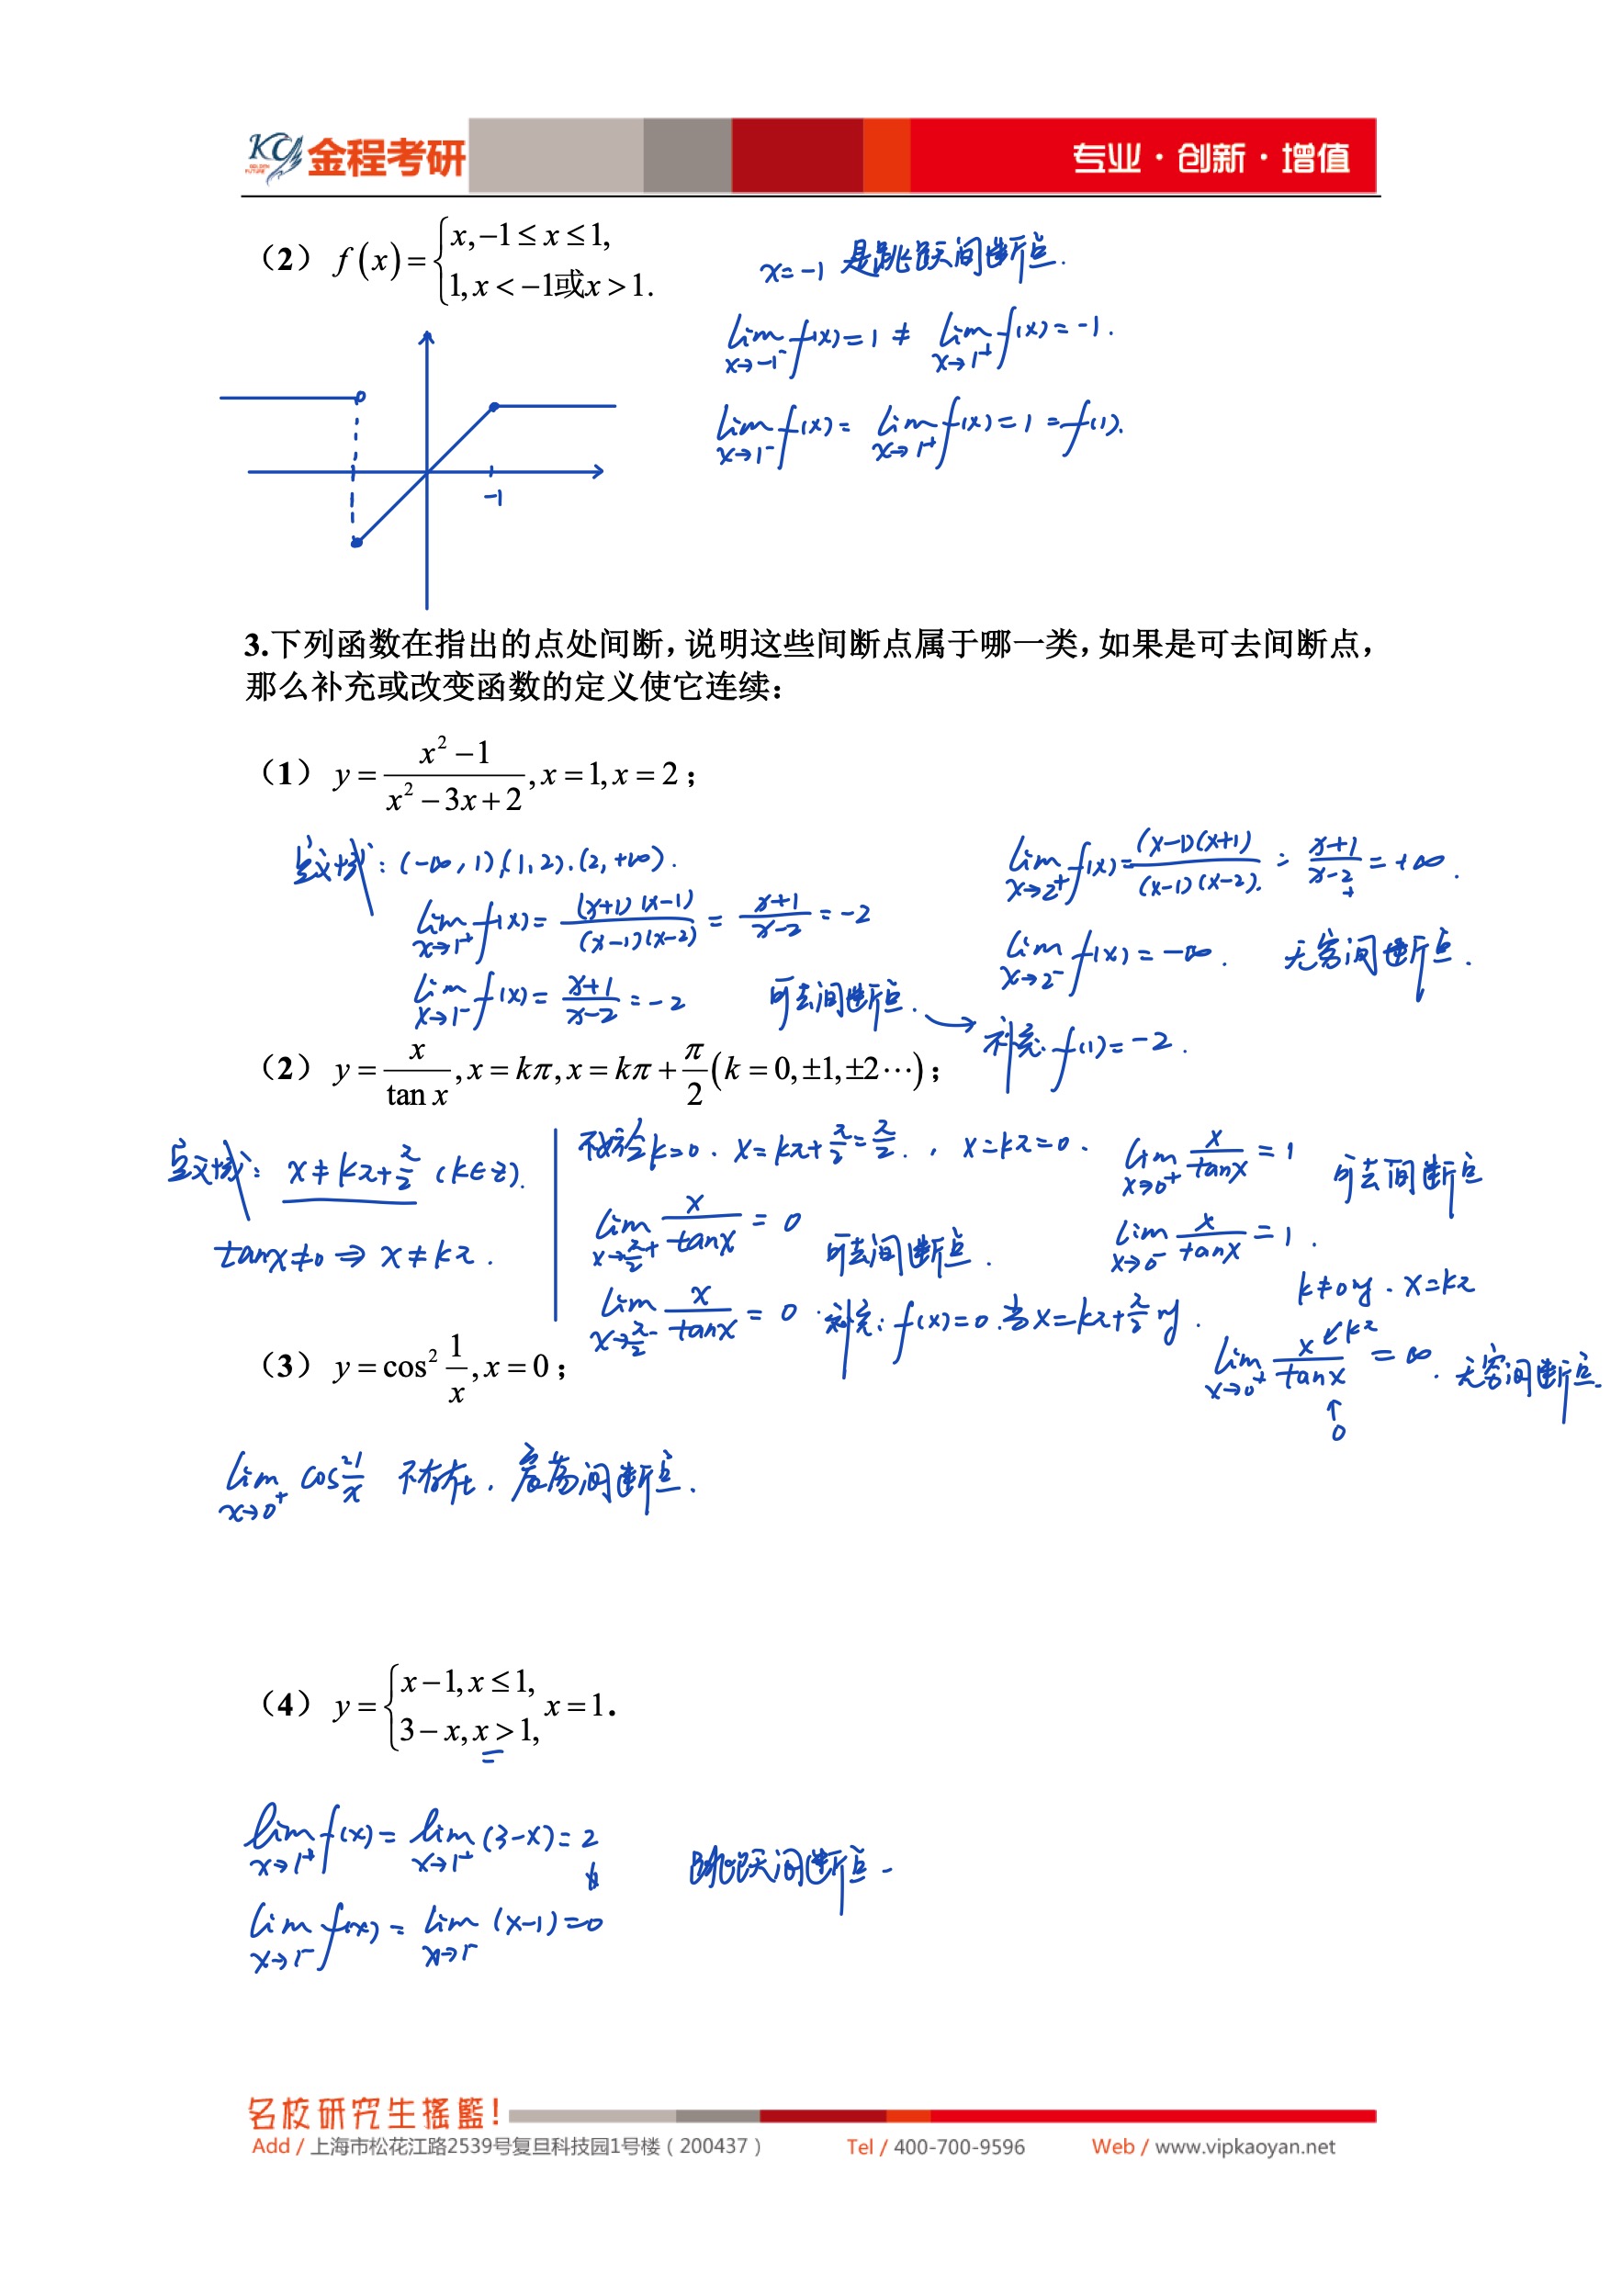 KC GOLDEN FUTURE 金程考研 专业·创新·增值
(2) f(x)={x,-1≤x≤1,
1,x<-1或x>1.
x=-1 是跳跃间断点.
lim x→-1⁻ f(x)=1≠ lim x→1⁺ f(x)=-1.
lim x→1⁻ f(x)= lim x→1⁺ f(x)=1=f(1).
-1
3.下列函数在指出的点处间断,说明这些间断点属于哪一类,如果是可去间断点,
那么补充或改变函数的定义使它连续:
(1) y=(x²-1)/(x²-3x+2),x=1,x=2;
定义域:(-∞,1),(1,2),(2,+∞).
lim x→1⁺ f(x)=(x+1)(x-1)/(x-1)(x-2)=(x+1)/(x-2)=-2
lim x→1⁻ f(x)=(x+1)/(x-2)=-2 可去间断点. → 补充:f(1)=-2.
lim x→2⁺ f(x)=(x-1)(x+1)/(x-1)(x-2)=(x+1)/(x-2)=+∞.
lim x→2⁻ f(x)=-∞. 无穷间断点.
(2) y=x/tan x,x=kπ,x=kπ+π/2(k=0,±1,±2⋯);
定义域:x≠kπ+π/2(k∈Z).
tanx≠0⇒x≠kπ.
不妨令k=0.x=kπ+π/2=π/2.,x=kπ=0.
lim x→π/2⁺ x/tanx=0 可去间断点.
lim x→π/2⁻ x/tanx=0.补充:f(x)=0.当x=kπ+π/2时.
lim x→0⁺ x/tanx=1 可去间断点
lim x→0⁻ x/tanx=1.
k≠0时.x=kπ
lim x→0⁺ x/tanx=∞.无穷间断点.
↙kπ
↑
0
(3) y=cos² 1/x,x=0;
lim x→0⁺ cos² 1/x 不存在.震荡间断点.
(4) y={x-1,x≤1,
3-x,x>1, x=1.
lim x→1⁺ f(x)= lim x→1⁺ (3-x)=2
跳跃间断点.
lim x→1⁻ f(x)= lim x→1⁻ (x-1)=0
名校研究生摇篮!
Add / 上海市松花江路2539号复旦科技园1号楼(200437) Tel / 400-700-9596 Web / www.vipkaoyan.net